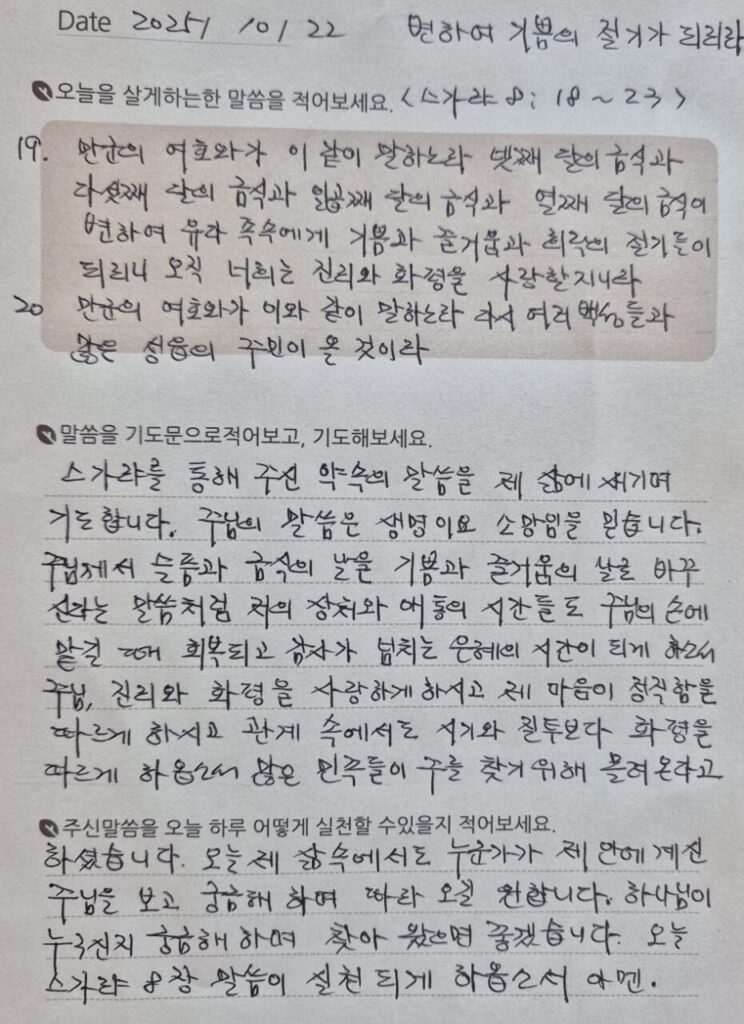 Date 2025 / 10 / 22 변하여 기쁨의 절기가 되리라
오늘을 살게하는한 말씀을 적어보세요. <스가랴 8: 18 ~ 23>
19. 만군의 여호와가 이 같이 말하노라 넷째 달의 금식과
다섯째 달의 금식과 일곱째 달의 금식과 열째 달의 금식이
변하여 유다 족속에게 기쁨과 즐거움과 희락의 절기들이
되리니 오직 너희는 진리와 화평을 사랑할지니라
20 만군의 여호와가 이와 같이 말하노라 다시 여러 백성들과
많은 성읍의 주민이 올 것이라
말씀을 기도문으로적어보고, 기도해보세요.
스가랴를 통해 주신 약속의 말씀을 제 삶에 새기며
기도합니다. 주님의 말씀은 생명이요 소망임을 믿습니다.
주님께서 슬픔과 금식의 날을 기쁨과 즐거움의 날로 바꾸
신다는 말씀처럼 저의 상처와 애통의 시간들도 주님의 손에
맡길 때에 회복되고 감사가 넘치는 은혜의 시간이 되게 하소서
주님, 진리와 화평을 사랑하게하시고 제 마음이 정직함을
따르게 하시고 관계 속에서도 시기와 질투보다 화평을
따르게 하옵소서 많은 민족들이 주를 찾기위해 몰려온다고
주신말씀을 오늘 하루 어떻게 실천할 수있을지 적어보세요.
하셨습니다. 오늘 제 삶속에서도 누군가가 제 안에 계신
주님을 보고 궁금해 하며 따라 오길 원합니다. 하나님이
누구신지 궁금해 하며 찾아 왔으면 좋겠습니다. 오늘
스가랴 8장 말씀이 실천 되게 하옵소서 아멘.